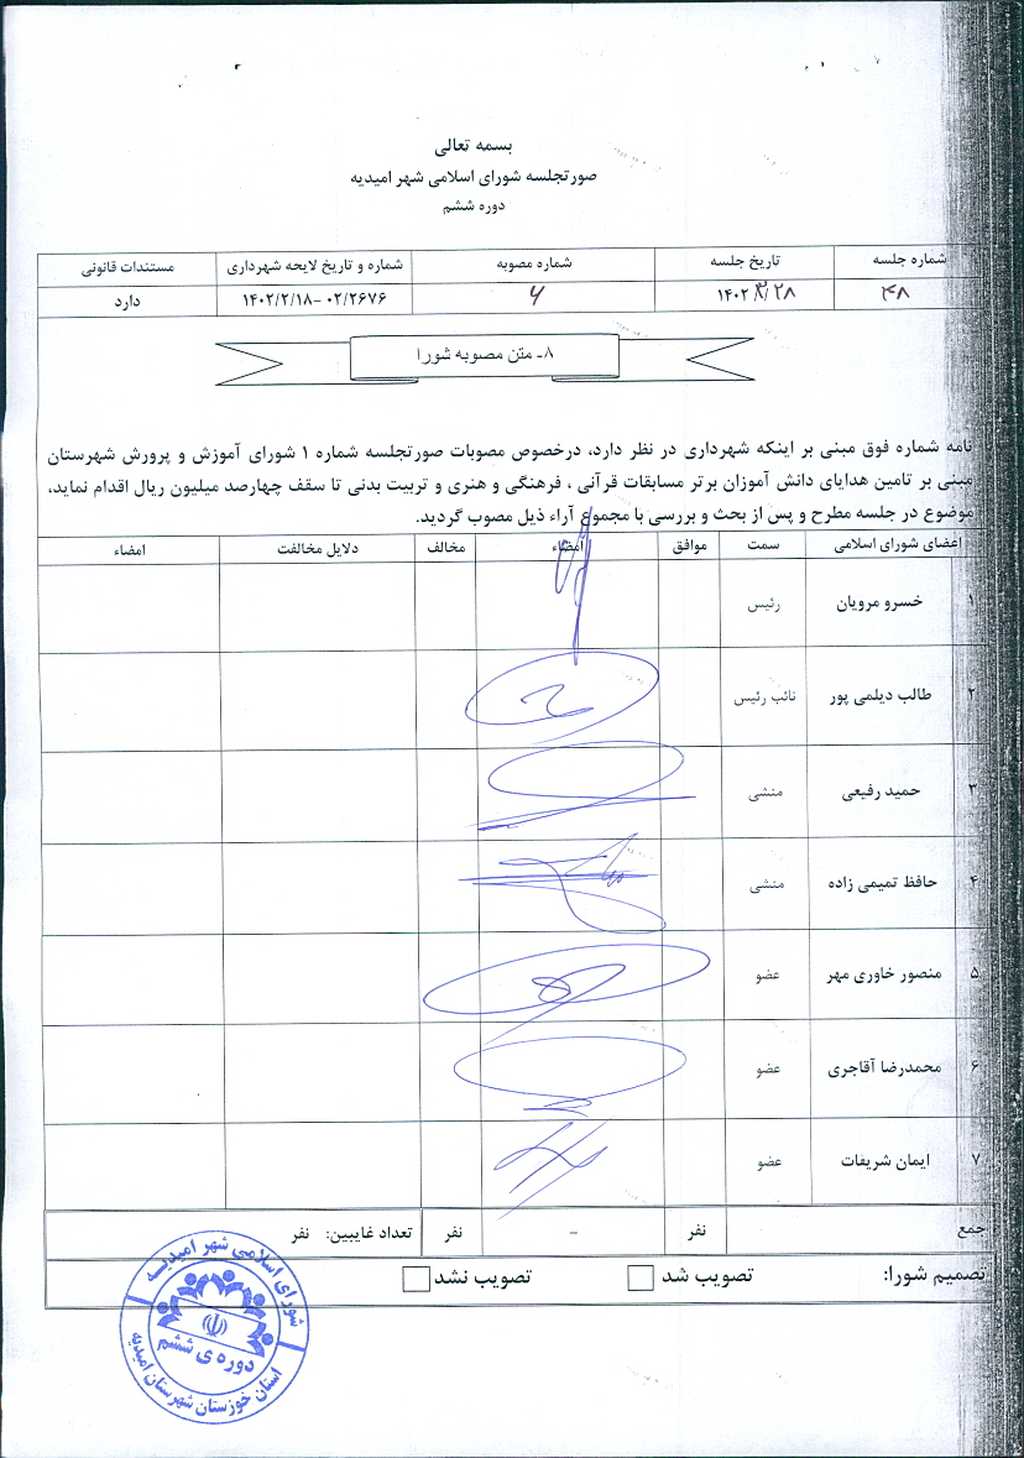 بسمه تعالی
صورتجلسه شورای اسلامی شهر امیدیه
دوره ششم
شماره جلسه تاریخ جلسه شماره مصوبه شماره و تاریخ لایحه شهرداری مستندات قانونی
۴۸ ۱۴۰۲/۳/۲۸ ۶ ۰۲/۲۶۷۶ -۱۴۰۲/۲/۱۸ دارد
۸- متن مصوبه شورا
نامه شماره فوق مبنی بر اینکه شهرداری در نظر دارد، درخصوص مصوبات صورتجلسه شماره ۱ شورای آموزش و پرورش شهرستان
مبنی بر تامین هدایای دانش آموزان برتر مسابقات قرآنی ، فرهنگی و هنری و تربیت بدنی تا سقف چهارصد میلیون ریال اقدام نماید،
موضوع در جلسه مطرح و پس از بحث و بررسی با مجموع آراء ذیل مصوب گردید.
اعضای شورای اسلامی سمت موافق امضاء مخالف دلایل مخالفت امضاء
۱ خسرو مرویان رئیس
۲ طالب دیلمی پور نائب رئیس
۳ حمید رفیعی منشی
۴ حافظ تمیمی زاده منشی
۵ منصور خاوری مهر عضو
۶ محمدرضا آقاجری عضو
۷ ایمان شریفات عضو
جمع نفر - نفر تعداد غایبین: نفر
تصمیم شورا: تصویب شد تصویب نشد
شورای اسلامی شهر امیدیه
دوره ی ششم
استان خوزستان شهرستان امیدیه